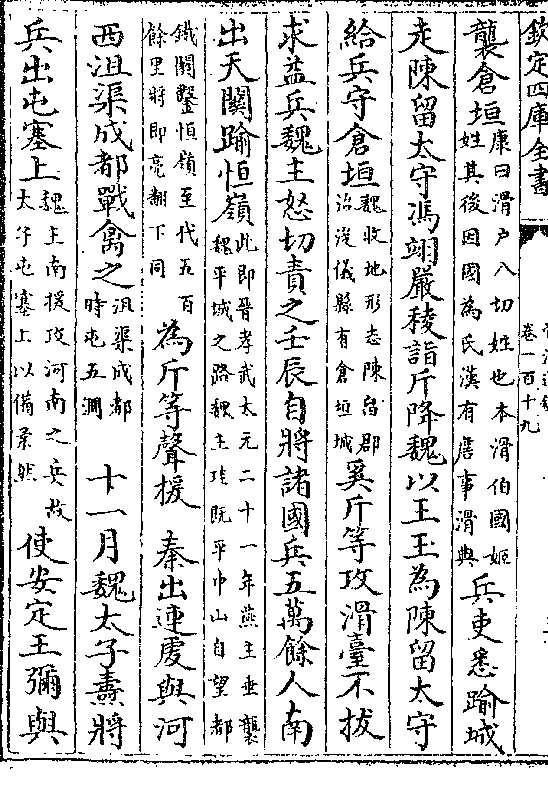 欽定四庫全書
卷一百十九
襲倉垣康曰滑戸八切姓也本滑伯國姬姓其後因國為氏漢有詹事滑典兵吏悉踰城
走陳留太守馮翊嚴稜詣斤降魏以王玉為陳留太守
給兵守倉垣魏收地形志陳留郡治浚儀縣有倉垣城奚斤等攻滑臺不拔
求益兵魏主怒切責之壬辰自將諸國兵五萬餘人南
出天關踰恒嶺此即晉孝武太元二十一年燕主垂襲魏平城之路魏主珪既平中山自望都
鐵關鑿恒嶺至代五百餘里將即亮翻下同為斤等聲援 秦出連虔與河
西沮渠成都戰禽之沮渠成都時屯五澗 十一月魏太子燾將
兵出屯塞上魏主南援攻河南之兵故太子屯塞上以備柔然使安定王彌與